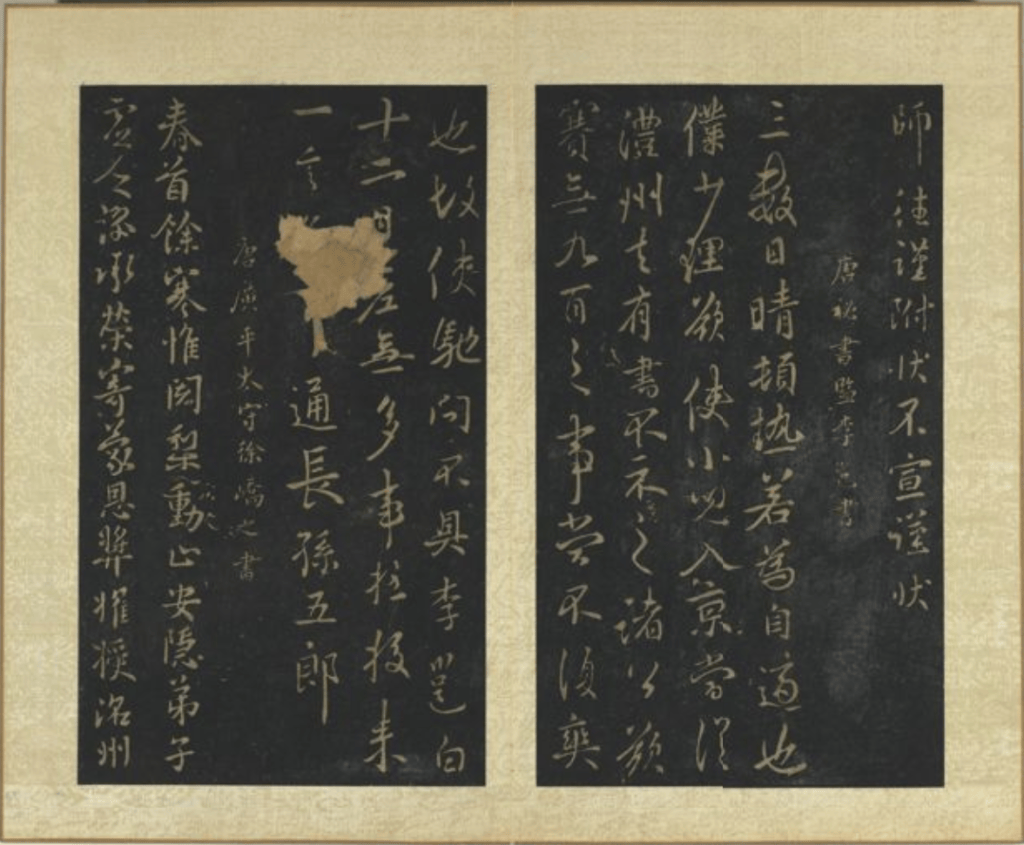 師 謹附狀不宣謹狀
唐秘書監李邕書
三數日晴頓熱若為自適也
僕少理欲使小兒入京當從
澧州去有書不示之諸公欲
賽無九百之事當不復爽
也故使馳問不具李邕白
十二日 無多事 來
一 通長孫五郎
唐廣平太守徐嶠之書
春首餘寒惟闍梨動止安隱弟子
虛乏謬承榮寄蒙恩獎擢授洺州